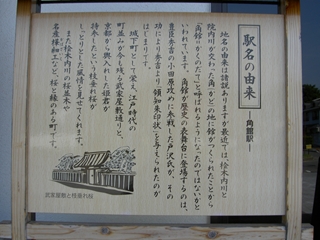 駅名の由来
ー角館駅ー
地名の由来は諸説ありますが最近では、桧木内川と
院内川が交わった角(かど)の地に館がつくられたことから
「角館(かくのだて)」と呼ばれるようになったのではないかと
いわれています。角館が歴史の表舞台に登場するのは、
豊臣秀吉の小田原攻めに参戦した戸沢氏が、その
功により秀吉より「領知朱印状」を与えられたのが
はじまりです。
城下町として栄え、江戸時代の
町並みが今も残る武家屋敷通りと、
京都から輿入れした姫君が
持参したという枝垂れ桜が
しっとりとした風情を見せてくれます。
また桧木内川の桜並木や
名産樺細工など、桜と縁のある町です。
武家屋敷と枝垂れ桜